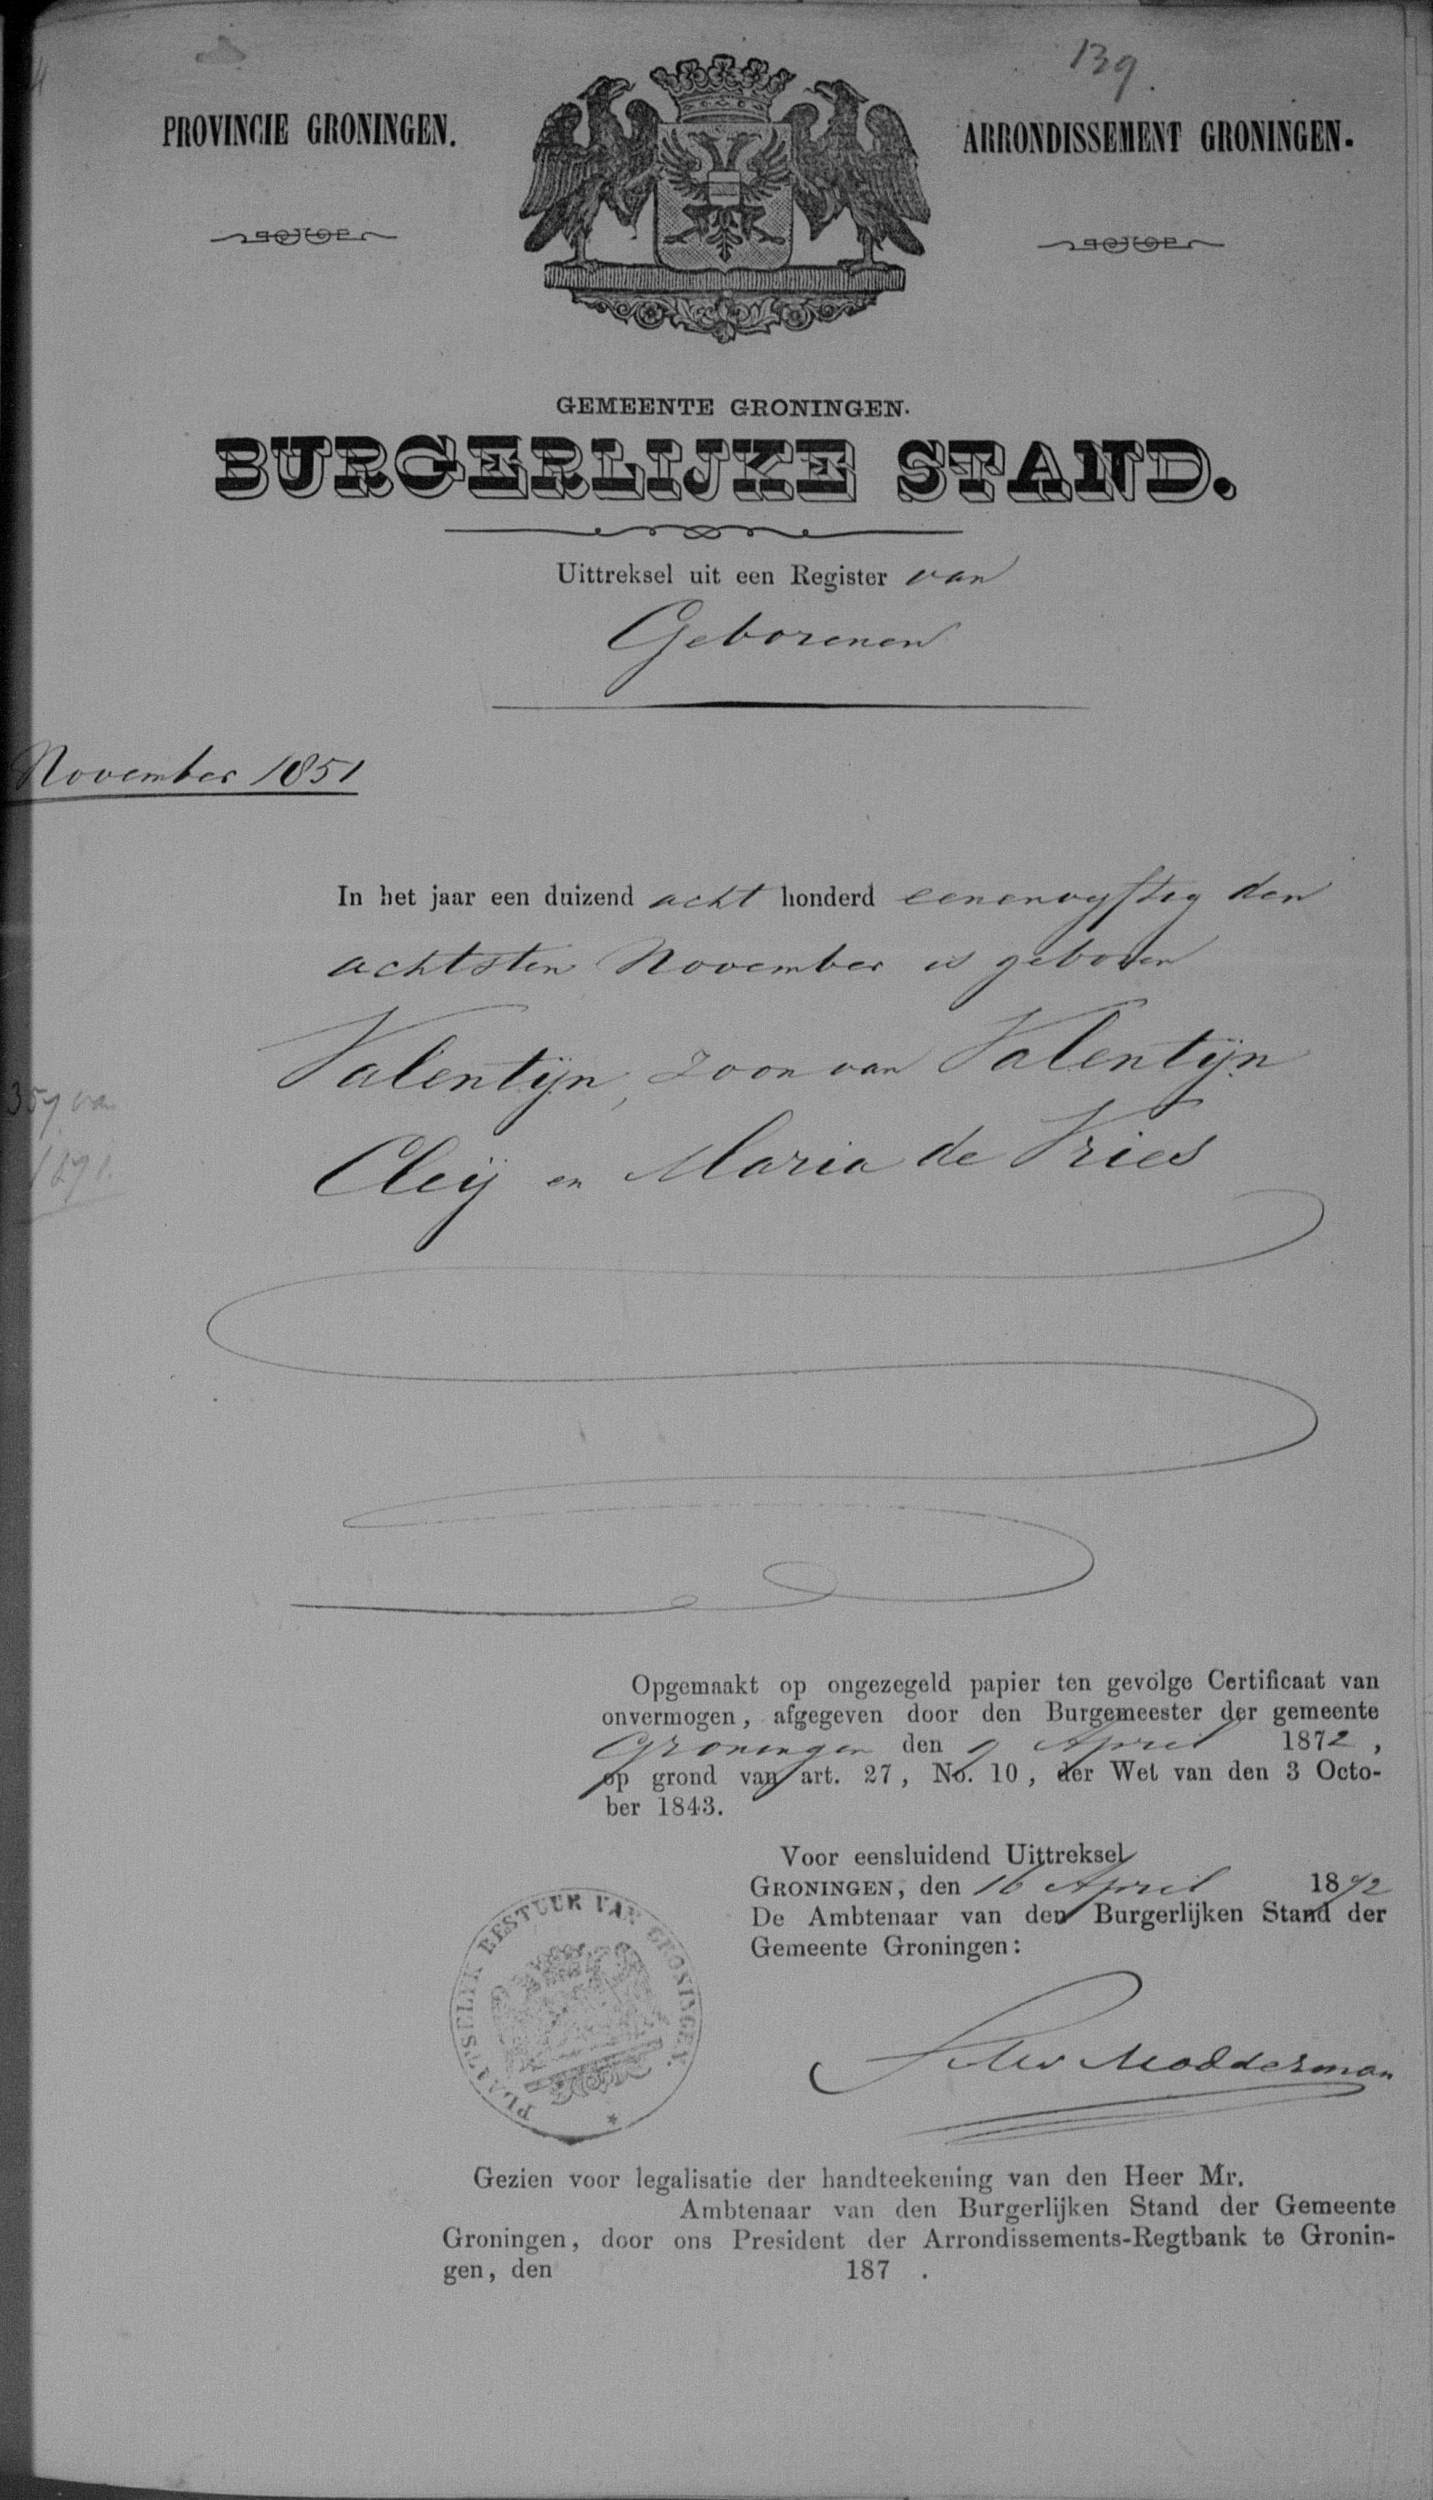 139.
PROVINCIE GRONINGEN.
ARRONDISSEMENT GRONINGEN.
GEMEENTE GRONINGEN.
BURGERLIJKE STAND.
Uittreksel uit een Register van
Geborenen
November 1851
In het jaar een duizend acht honderd eenenvyftig den
achtsten November is geboren
Valentijn, zoon van Valentijn
Cleij en Maria de Vries
359 van
1871.
Opgemaakt op ongezegeld papier ten gevolge Certificaat van
onvermogen, afgegeven door den Burgemeester der gemeente
Groningen den 9 April 1872,
op grond van art. 27, No. 10, der Wet van den 3 Octo-
ber 1843.
Voor eensluidend Uittreksel
GRONINGEN, den 16 April 1872
De Ambtenaar van den Burgerlijken Stand der
Gemeente Groningen:
PLAATSELIJK BESTUUR VAN GRONINGEN.
Modderman
Gezien voor legalisatie der handteekening van den Heer Mr.
Ambtenaar van den Burgerlijken Stand der Gemeente
Groningen, door ons President der Arrondissements-Regtbank te Gronin-
gen, den 187 .